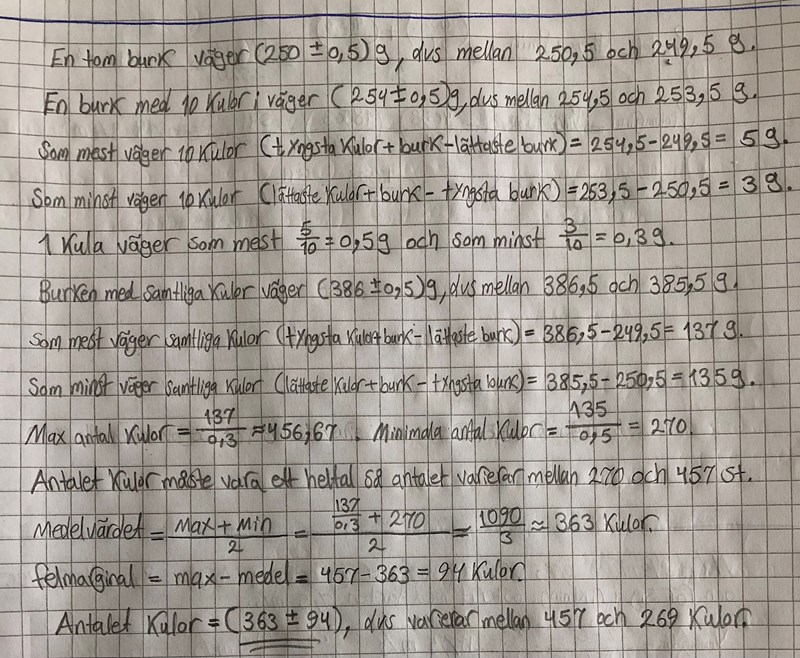 En tom burk väger (250 ± 0,5) g, dvs mellan 250,5 och 249,5 g.
En burk med 10 kulor i väger (254 ± 0,5)g, dvs mellan 254,5 och 253,5 g.
Som mest väger 10 kulor (tyngsta kulor + burk - lättaste burk) = 254,5 - 249,5 = 5 g.
Som minst väger 10 kulor (lättaste kulor + burk - tyngsta burk) = 253,5 - 250,5 = 3 g.
1 kula väger som mest 5/10 = 0,5 g och som minst 3/10 = 0,3 g.
Burken med samtliga kulor väger (386 ± 0,5) g, dvs mellan 386,5 och 385,5 g.
Som mest väger samtliga kulor (tyngsta kulor + burk - lättaste burk) = 386,5 - 249,5 = 137 g.
Som minst väger samtliga kulor (lättaste kulor + burk - tyngsta burk) = 385,5 - 250,5 = 135 g.
Max antal kulor = 137/0,3 ≈ 456,67. Minimala antal kulor = 135/0,5 = 270.
Antalet kulor måste vara ett heltal så antalet varierar mellan 270 och 457 st.
Medelvärdet = (max + min)/2 = (137/0,3 + 270)/2 = 1090/3 ≈ 363 kulor.
felmarginal = max - medel = 457 - 363 = 94 kulor.
Antalet kulor = (363 ± 94), dvs varierar mellan 457 och 269 kulor.